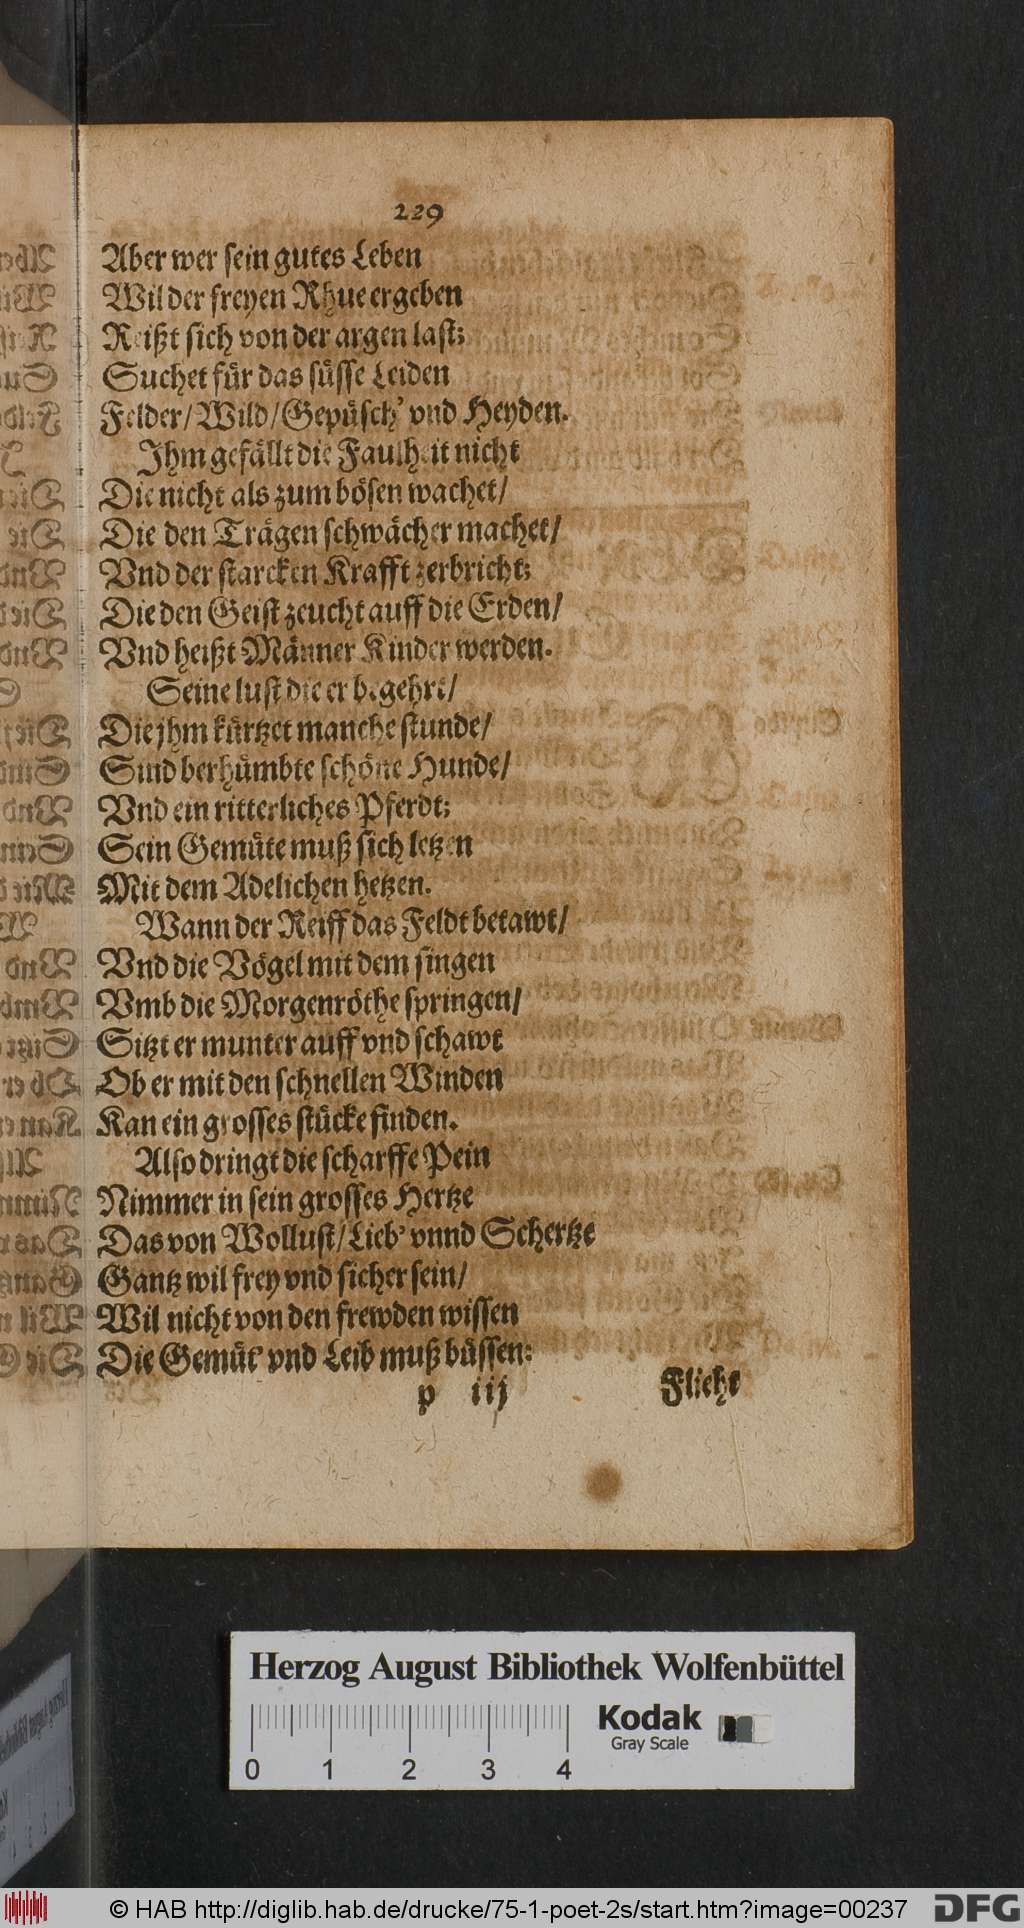 229
Aber wer sein gutes Leben
Wil der freyen Rhue ergeben
Reißt sich von der argen last;
Suchet für das süsse Leiden
Felder/Wild/Gepüsch' vnd Heyden.
Ihm gefällt die Faulheit nicht
Die nicht als zum bösen wachet/
Die den Trägen schwächer machet/
Vnd der starcken Krafft zerbricht;
Die den Geist zeucht auff die Erden/
Vnd heißt Männer Kinder werden.
Seine lust die er begehrt/
Die jhm kürtzet manche stunde/
Sind berhümbte schöne Hunde/
Vnd ein ritterliches Pferdt;
Sein Gemüte muß sich letzen
Mit dem Adelichen hetzen.
Wann der Reiff das Feldt betawt/
Vnd die Vögel mit dem singen
Vmb die Morgenröthe springen/
Sitzt er munter auff vnd schawt
Ob er mit den schnellen Winden
Kan ein grosses stücke finden.
Also dringt die scharffe Pein
Nimmer in sein grosses Hertze
Das von Wollust/Lieb' vnnd Schertze
Gantz wil frey vnd sicher sein/
Wil nicht von den frewden wissen
Die Gemüt' vnd Leib muß büssen:
p iij Flieht
Herzog August Bibliothek Wolfenbüttel
Kodak
Gray Scale
0 1 2 3 4
© HAB http://diglib.hab.de/drucke/75-1-poet-2s/start.htm?image=00237
DFG